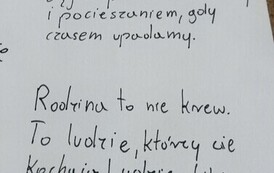 i pocieszaniem, gdy
czasem upadamy.
Rodzina to nie krew.
To ludzie, którzy cię